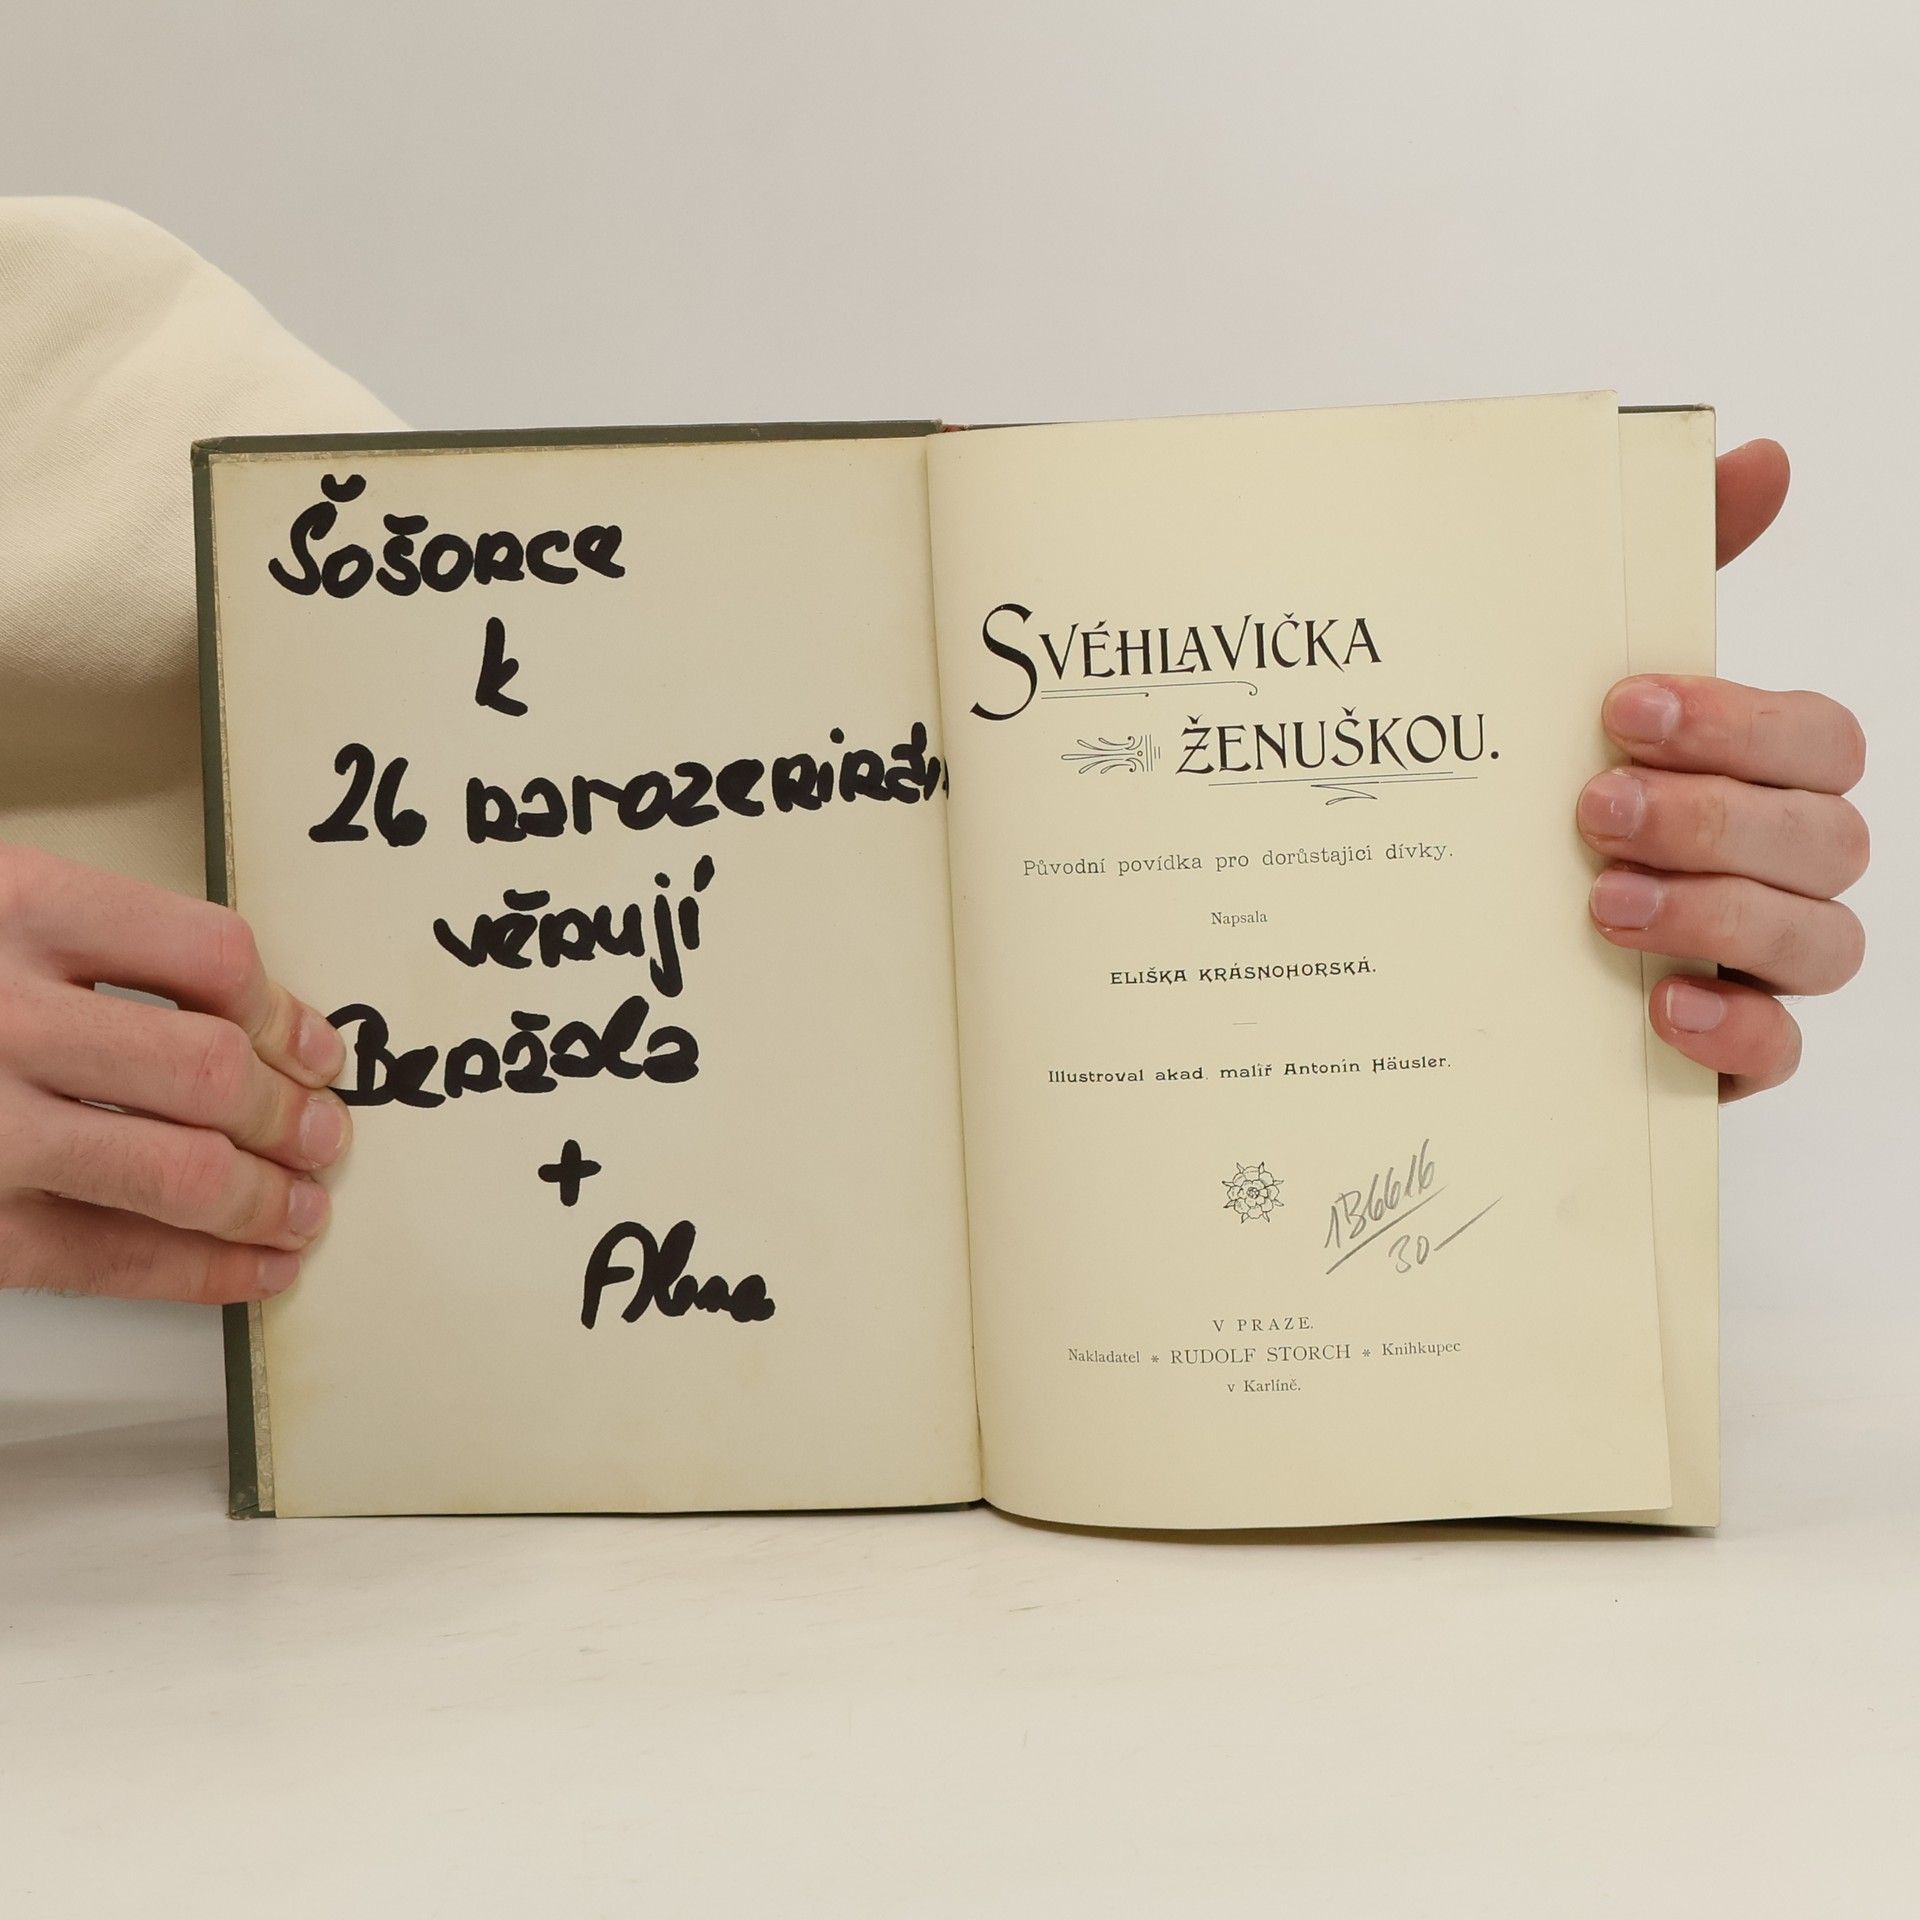 Šošonce
k
26 narozeninám
věnují
Benžola
+
Alma
SVÉHLAVIČKA
ŽENUŠKOU.
Původní povídka pro dorůstající dívky.
Napsala
ELIŠKA KRÁSNOHORSKÁ.
Illustroval akad. malíř Antonín Häusler.
136616
30-
V PRAZE.
Nakladatel * RUDOLF STORCH * Knihkupec
v Karlíně.